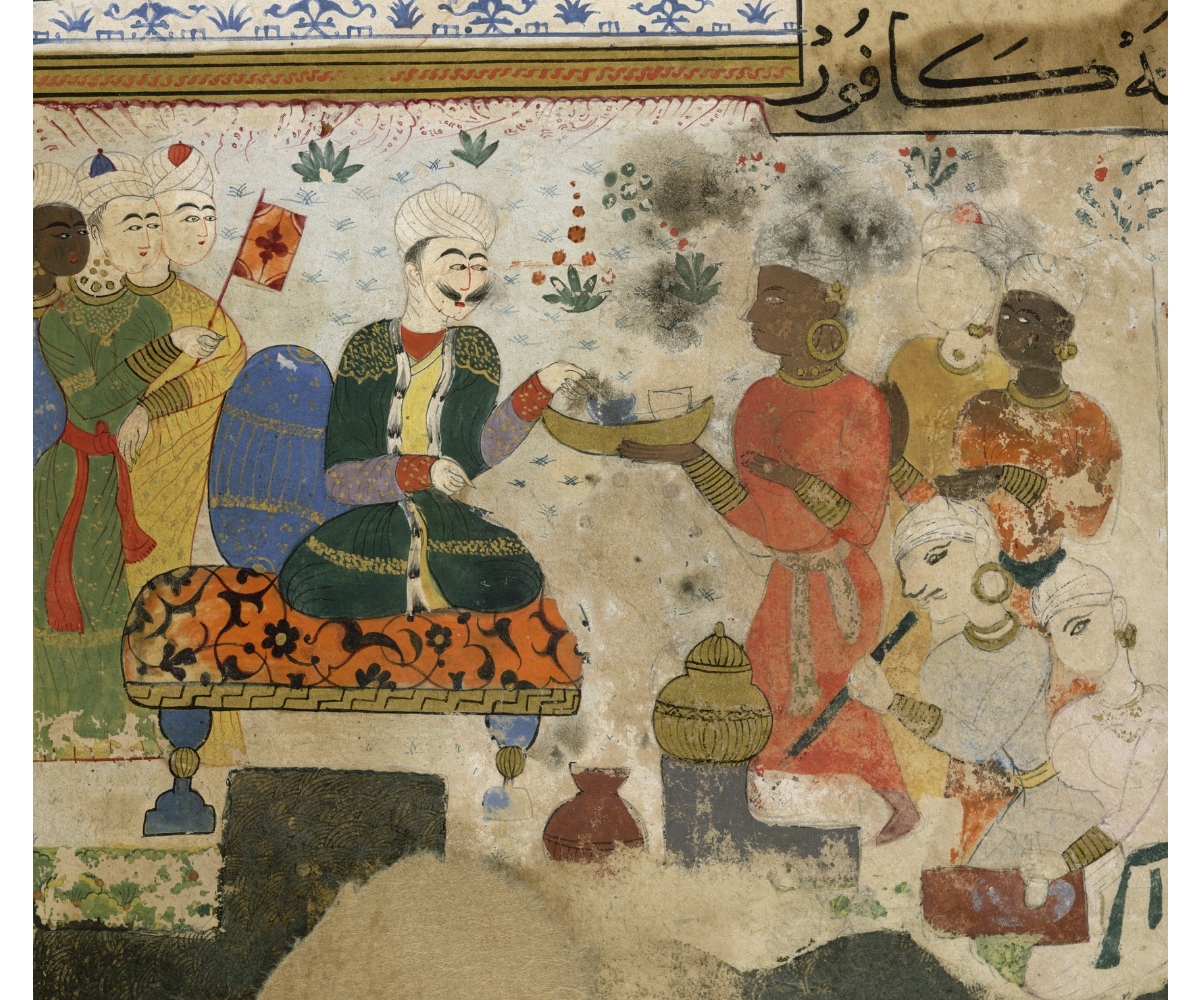 كَافُورْ